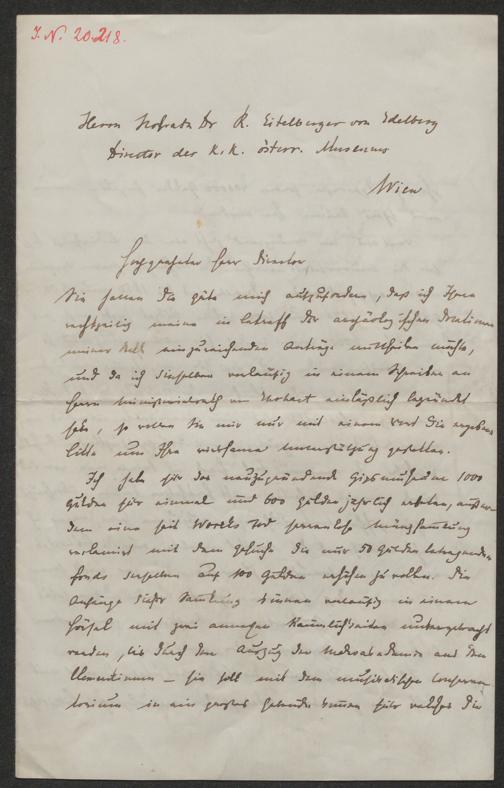 I. N. 20.218.
Herrn Hofrath Dr R. Eitelberger von Edelberg
Director der K. K. österr. Museums
Wien
Hochgeehrter Herr Director
Sie hatten die Güte mich aufzufordern, daß ich Ihnen
rechtzeitig meine in betreff der archäologischen Dotationen
meiner einzureichenden Anträge mittheilen möchte,
und da ich dieselben vorläufig in einem Schreiben an
Herrn Ministerialrath von ausführlich begründet
habe, so wollen Sie mir nur mit einem Wort die ergebene
Bitte um Ihre wirksame Unterstützung gestatten.
Ich habe für das neuzugründende Gipsmuseum 1000
Gulden für einmal und 600 Gulden jährlich erbeten, außer
dem eine seit Tod herrenlose Münzsammlung
reclamirt mit dem Gesuche die nur 50 Gulden betragenden
Fonds derselben auf 100 Gulden erhöhen zu wollen. Die
Anfänge dieser Sammlung können vorläufig in einem
Hörsal mit zwei annexen Räumlichkeiten untergebracht
werden, die durch den Auszug der aus dem
Clementinum — sie soll mit dem musikalischen Conserva-
torium in ein großes Gebäude kommen für welches die